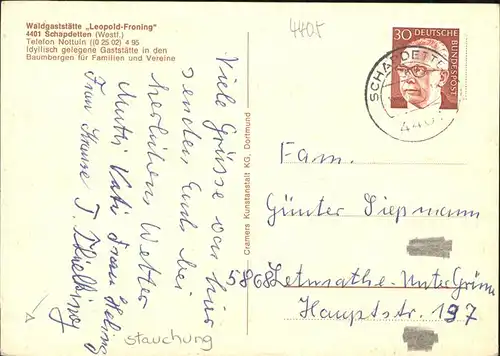 Waldgaststätte „Leopold-Froning"
4401 Schapdetten (Westf.)
Telefon Nottuln (0 25 02) 4 95
Idyllisch gelegene Gaststätte in den
Baumbergen für Familien und Vereine
4405
30 DEUTSCHE
BUNDESPOST
SCHAPDETTEN
440
Viele Grüsse von hier
senden Euch bei
herrlichem Wetter
Mutti Vati Frau
Frau Krause T.
stauchung
Cramers Kunstanstalt KG, Dortmund
Fam.
Günter Diepmann
5868 Letmathe-Unter Grüne
Hauptstr. 197